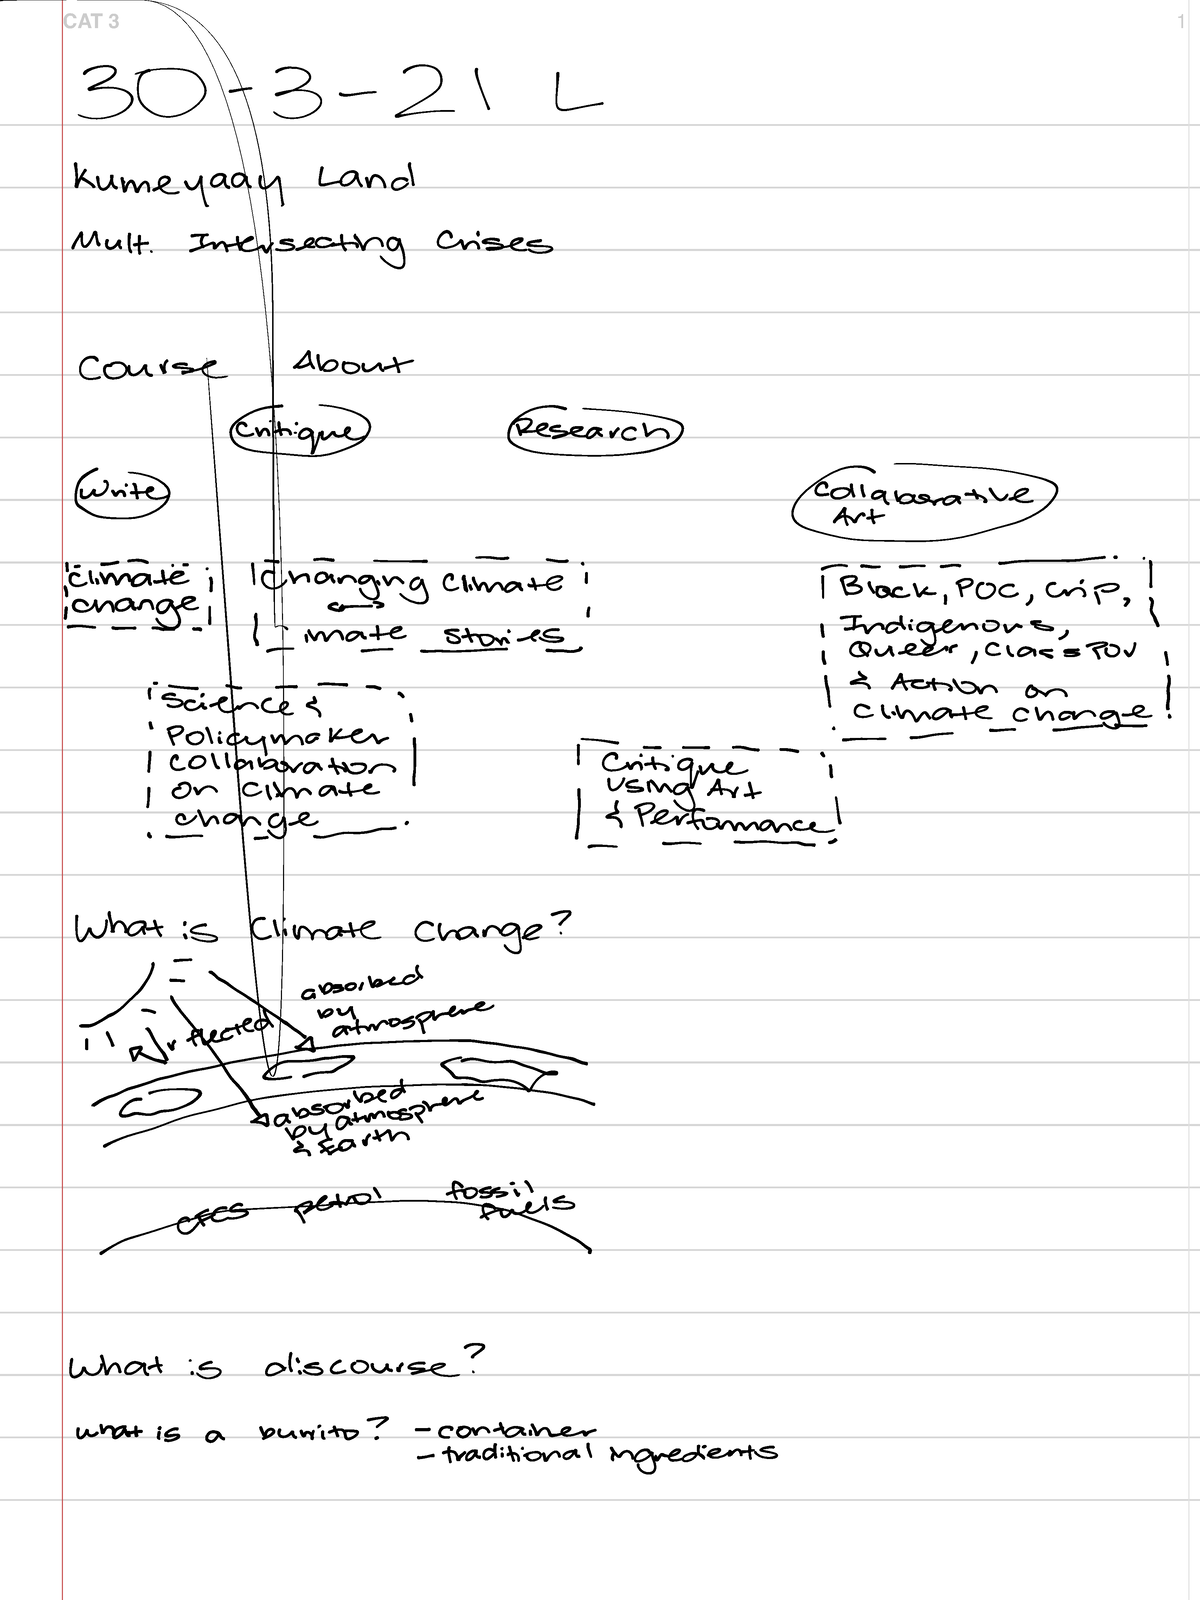 CAT 3
1
30-3-21 L
Kumeyaay Land
Mult. Intersecting Crises
Course About
Critique
Research
Write
Collaborative
Art
Climate
change
Changing Climate
imate stories
Black, POC, Crip,
Indigenous,
Queer, Class POV
& Action on
Climate change
Science &
Policymaker
collaboration
on Climate
change
Critique
using Art
& Performance
What is Climate Change?
absorbed
by
atmosphere
reflected
absorbed
by atmosphere
& Earth
CFCS petrol fossil
fuels
What is discourse?
what is a burrito? - container
- traditional ingredients